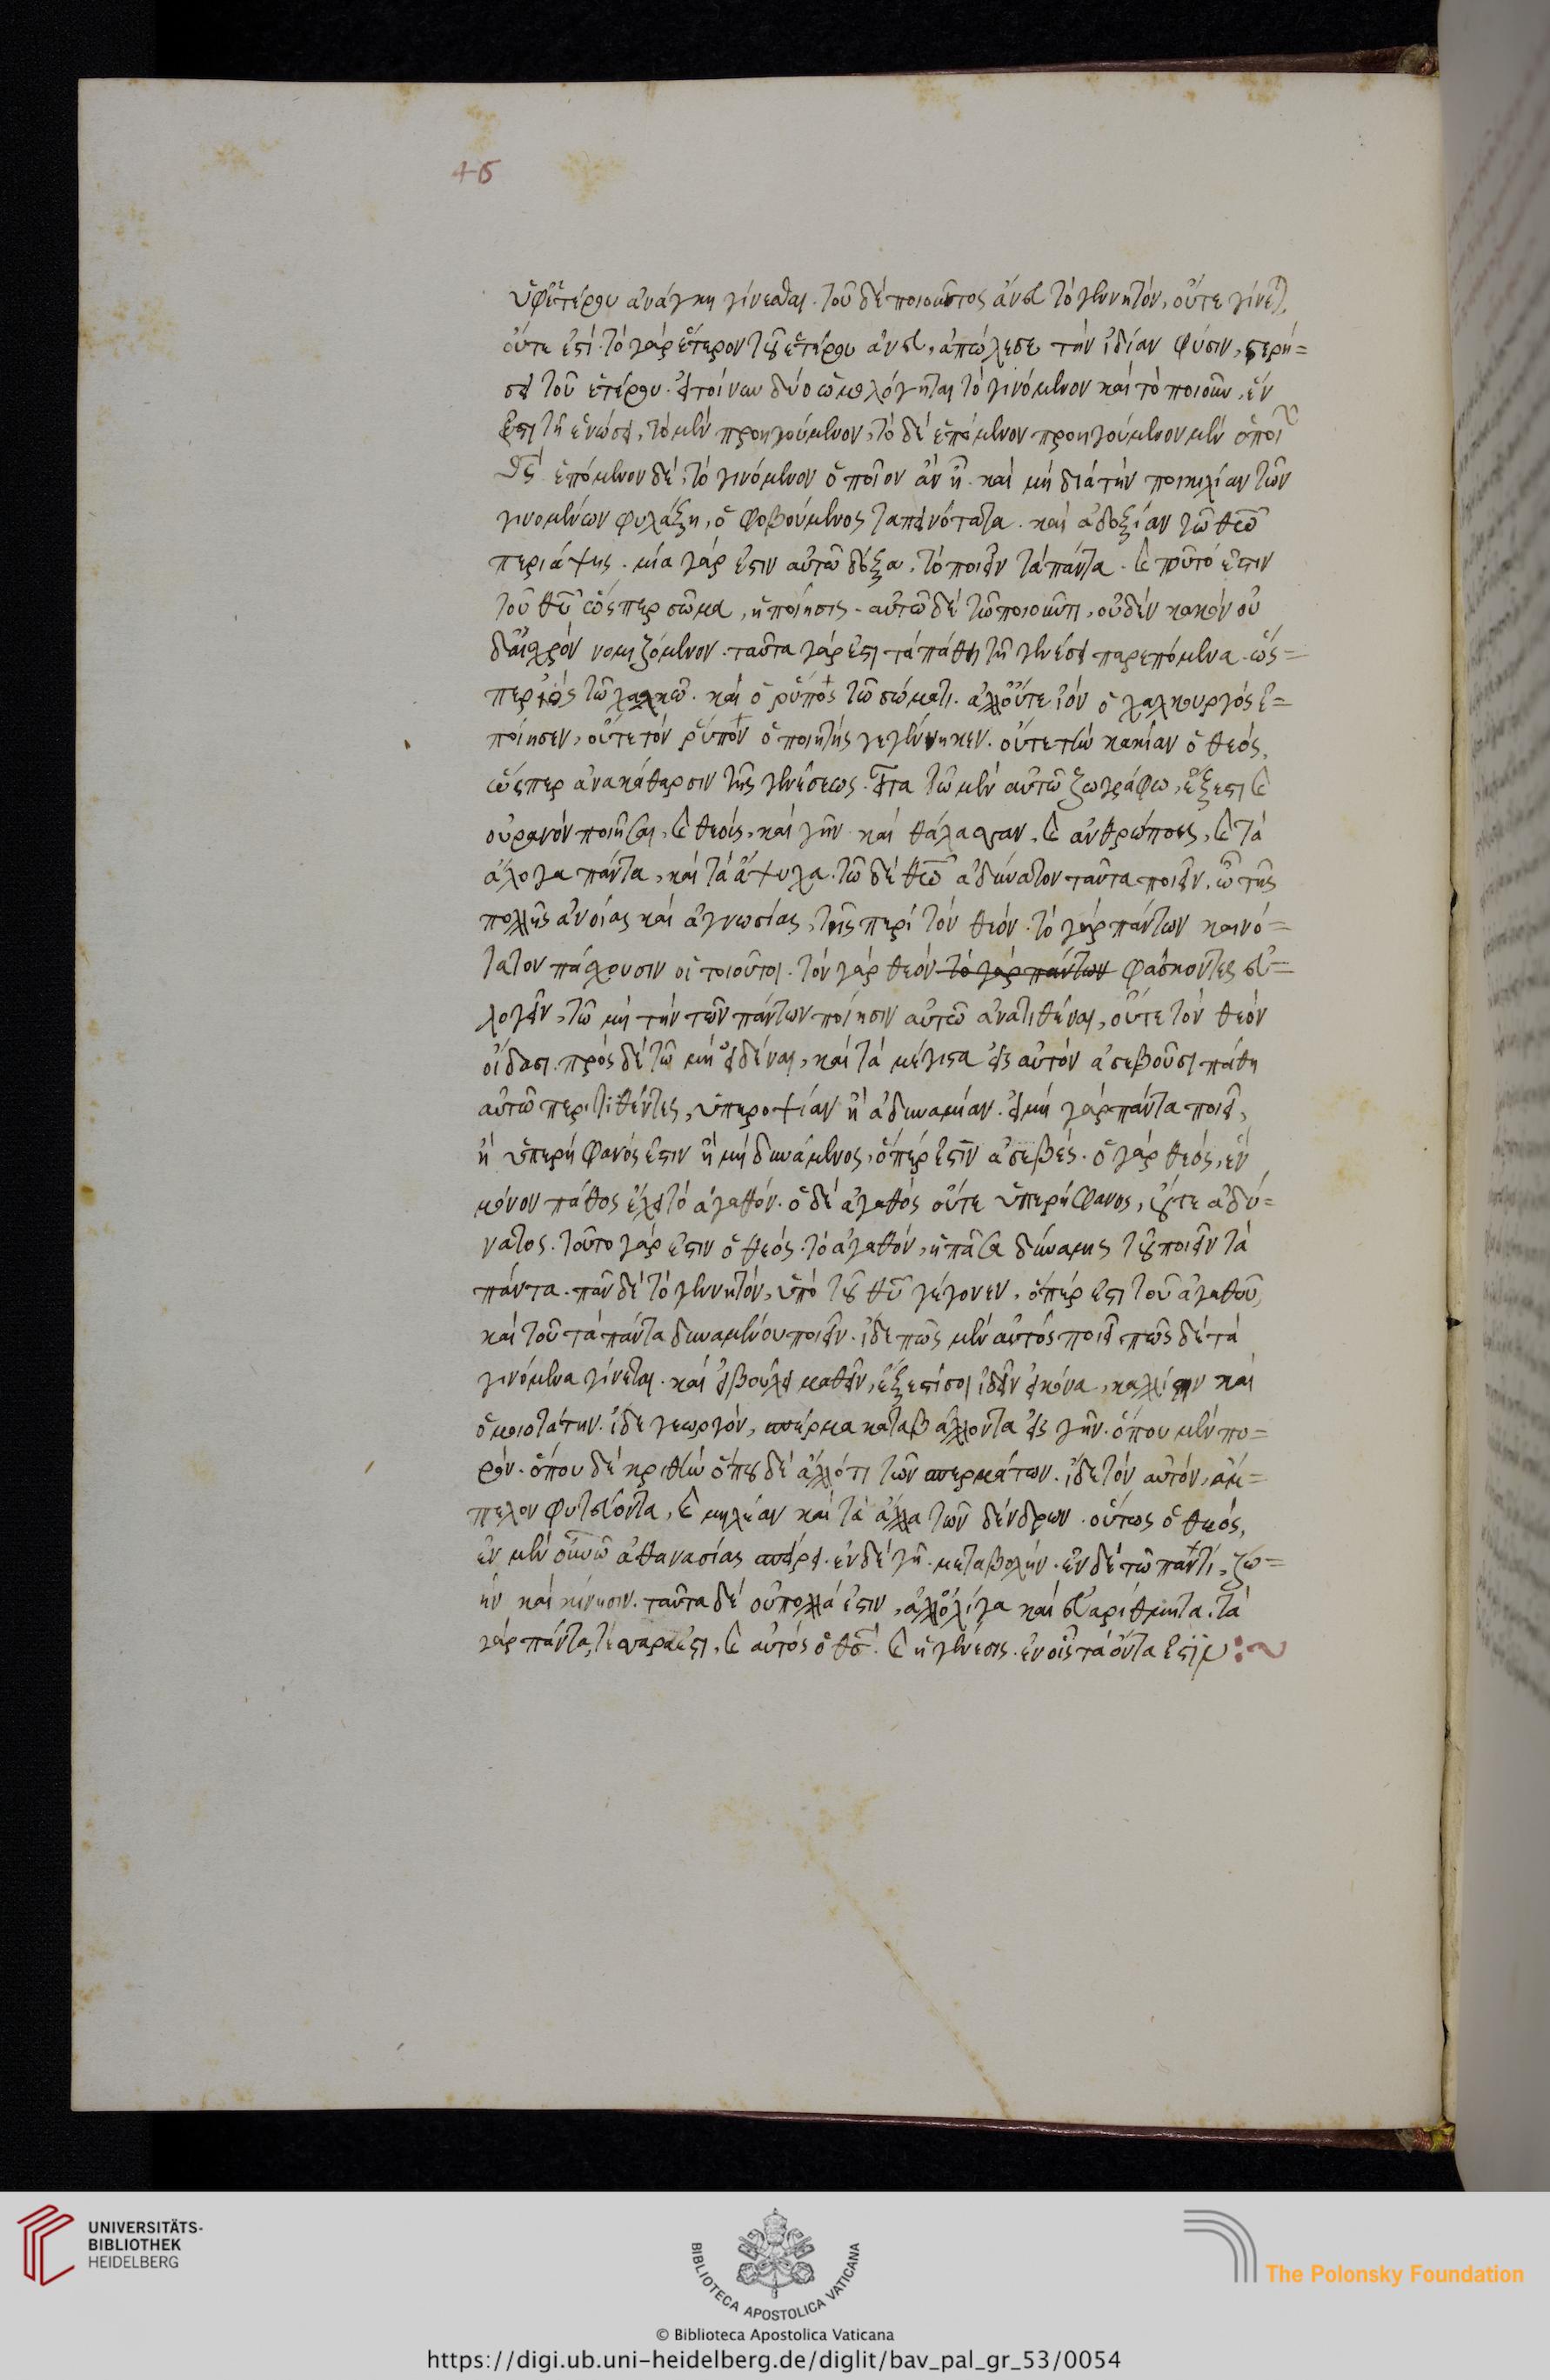 46
ὑφ' ἑτέρου ἀνάγκη γίνεσθαι. τοῦ δὲ ποιοῦντος ἄνευ τὸ γεννητόν, οὔτε γίνεται,
οὔτε ἐστί. τὸ γὰρ ἕτερον τοῦ ἑτέρου ἄνευ, ἀπώλεσε τὴν ἰδίαν φύσιν, στερή=
σει τοῦ ἑτέρου. εἰ τοίνυν δύο ὡμολόγηται τὸ γινόμενον καὶ τὸ ποιοῦν, ἕν
ἐστι τῇ ἑνώσει, τὸ μὲν προηγούμενον, τὸ δὲ ἑπόμενον προηγούμενον μὲν ὁ ποι
θεός ἑπόμενον δὲ, τὸ γινόμενον ὁποῖον ἂν ᾖ. καὶ μὴ διὰ τὴν ποικιλίαν τῶν
γινομένων φυλάξῃ, ὁ φοβούμενος ταπεινότατα. καὶ ἀδοξίαν τῷ θεῷ
περιάψῃς. μία γάρ ἐστιν αὐτῷ δόξα, τὸ ποιεῖν τὰ πάντα. καὶ τοῦτό ἐστιν
τοῦ θεοῦ ὥσπερ σῶμα, ἡ ποίησις. αὐτῷ δὲ τῷ ποιοῦντι, οὐδὲν κακὸν οὐ
δ' αἰσχρὸν νομιζόμενον. ταῦτα γάρ ἐστι τὰ πάθη τῇ γενέσει παρεπόμενα. ὥσ=
περ ἰὸς τῷ χαλκῷ. καὶ ὁ ῥύπος τῷ σώματι. ἀλλ' οὔτε ἰὸν ὁ χαλκουργὸς ἐ=
ποίησεν, οὔτε τὸν ῥύπον ὁ ποιητὴς γεγέννηκεν. οὔτε τὴν κακίαν ὁ θεός,
ὥσπερ ἀνακάθαρσιν τῆς γενέσεως. εἶτα τῷ μὲν αὐτῷ ζωγράφῳ, ἔξεστι καὶ
οὐρανὸν ποιῆσαι, καὶ θεοὺς, καὶ γῆν καὶ θάλασσαν, καὶ ἀνθρώπους, καὶ τὰ
ἄλογα πάντα, καὶ τὰ ἄψυχα. τῷ δὲ θεῷ ἀδύνατον ταῦτα ποιεῖν. ὦ τῆς
πολλῆς ἀνοίας καὶ ἀγνωσίας, τῆς περὶ τὸν θεόν. τὸ γὰρ πάντων καινό=
τατον πάσχουσιν οἱ τοιοῦτοι. τὸν γὰρ θεὸν τὸ γὰρ πάντων φάσκοντες εὐ=
λογεῖν, τῷ μὴ τὴν τῶν πάντων ποίησιν αὐτῷ ἀνατιθέναι, οὔτε τὸν θεὸν
οἴδασι. πρὸς δὲ τῷ μὴ εἰδέναι, καὶ τὰ μέγιστα εἰς αὐτὸν ἀσεβοῦσι πάθη
αὐτῷ περιτιθέντες, ὑπεροψίαν ἢ ἀδυναμίαν. εἰ μὴ γὰρ πάντα ποιεῖ,
ἢ ὑπερήφανός ἐστιν ἢ μὴ δυνάμενος, ὅπερ ἐστὶν ἀσεβές. ὁ γὰρ θεὸς, ἓν
μόνον πάθος ἔχει τὸ ἀγαθόν. ὁ δὲ ἀγαθὸς οὔτε ὑπερήφανος, οὔτε ἀδύ=
νατος. τοῦτο γάρ ἐστιν ὁ θεός. τὸ ἀγαθόν, ἡ πᾶσα δύναμις τοῦ ποιεῖν τὰ
πάντα. πᾶν δὲ τὸ γεννητόν, ὑπὸ τοῦ θεοῦ γέγονεν, ὅπερ ἐστὶ τοῦ ἀγαθοῦ,
καὶ τοῦ τὰ πάντα δυναμένου ποιεῖν. ἴδε πῶς μὲν αὐτὸς ποιεῖ πῶς δὲ τὰ
γινόμενα γίνεται. καὶ εἰ βούλει μαθεῖν, ἔξεστί σοι ἰδεῖν εἰκόνα, καλλίστην καὶ
ὁμοιοτάτην. ἴδε γεωργὸν, σπέρμα καταβάλλοντα εἰς γῆν. ὅπου μὲν πυ=
ρόν. ὅπου δὲ κριθὴν ὅπου δὲ ἄλλό τι τῶν σπερμάτων. ἴδε τὸν αὐτόν, ἄμ=
πελον φυτεύοντα, καὶ μηλέαν καὶ τὰ ἄλλα τῶν δένδρων. οὕτως ὁ θεός,
ἐν μὲν οὐρανῷ ἀθανασίας σπείρει. ἐν δὲ γῇ. μεταβολήν. ἐν δὲ τῷ παντί, ζω=
ὴν καὶ κίνησιν. ταῦτα δὲ οὐ πολλά ἐστιν, ἀλλ' ὀλίγα καὶ εὐαρίθμητα. τὰ
γὰρ πάντα, τέσσαρα ἐστι, καὶ αὐτὸς ὁ θεός. καὶ ἡ γένεσις. ἐν οἷς τὰ ὄντα ἐστίν :~
UNIVERSITÄTS-
BIBLIOTHEK
HEIDELBERG
BIBLIOTECA APOSTOLICA VATICANA
The Polonsky Foundation
© Biblioteca Apostolica Vaticana
https://digi.ub.uni-heidelberg.de/diglit/bav_pal_gr_53/0054